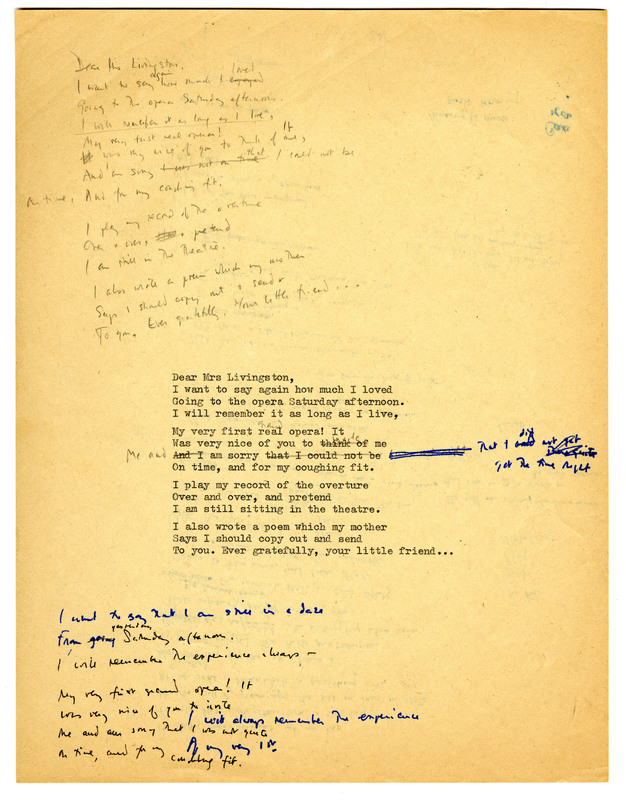 Dear Mrs Livingston,
again loved
I want to say how much I enjoyed
Going to the opera Saturday afternoon.
I will remember it as long as I live,
My very first real opera! It
It was very nice of you to think of me,
And am sorry I was not on time that I could not be
On time, And for my coughing fit.
I play my record of the overture
Over & over, & pretend
I am still in the theatre.
I also wrote a poem which my mother
Says I should copy out & send
To you. Ever gratefully, Your little friend...
Dear Mrs Livingston,
I want to say again how much I loved
Going to the opera Saturday afternoon.
I will remember it as long as I live,
grand
My very first real opera! It
invite
Was very nice of you to think of me
Me and And I am sorry that I could not be
that I did not get
got the time right
On time, and for my coughing fit.
I play my record of the overture
Over and over, and pretend
I am still sitting in the theatre.
I also wrote a poem which my mother
Says I should copy out and send
To you. Ever gratefully, your little friend...
I want to say that I am still in a daze
yesterday
From going Saturday afternoon.
I will remember the experience always —
My very first grand opera! It
was very nice of you to invite
I will always remember the experience
Me and am sorry that I was not quite
Of my very 1st
On time, and for my coughing fit.